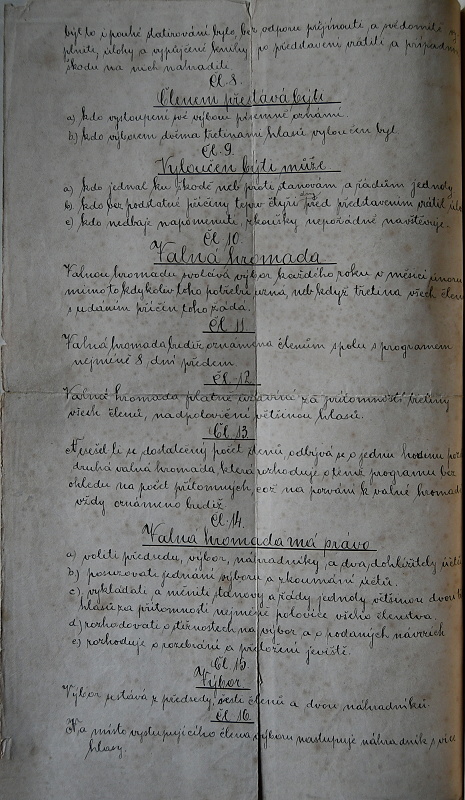 byť to i pouhé statirování bylo, bez odporu přijmouti, a svědomitě
plniti, úlohy a vypůjčené knihy po představení vrátiti a případnou
škodu na nich nahraditi.
Čl. 8.
Členem přestává býti
a) kdo vystoupení své výboru písemně oznámí.
b) kdo výborem dvěma třetinami hlasů vyloučen byl
Čl. 9.
Vyloučen býti může
a) kdo jednal ku škodě neb proti stanovám a řádům jednoty
b) kdo bez podstatné příčiny teprv čtyři před představením vrátil
c) kdo nedbaje napomenutí, zkoušky nepořádně navštěvuje.
Čl. 10.
Valná hromada
Valnou hromadu svolává výbor každého roku v měsíci únoru
mimo to kdykoliv toho potřebu uzná, neb když třetina všech členů
s udáním příčin toho žádá.
Čl. 11.
Valná hromada budiž oznámena členům spolu s programem
nejméně 8 dní předem.
Čl. 12.
Valná hromada platně usnáší za přítomnosti třetiny
všech členů, nadpoloviční většinou hlasů.
Čl. 13.
Nesešel li se dostatečný počet členů odbývá se o jednu hodinu
druhá valná hromada, která rozhoduje o témž programu bez
ohledu na počet přítomných, což na pozvání k valné hromadě
vždy oznámeno budiž
Čl. 14.
Valná hromada má právo
a) voliti předsedu, výbor, náhradníky, a dva dohližitely účtů
b) posuzovati jednání výboru a zkoumání účtů.
c) vykládati a měniti stanovy a řády jednoty většinou dvou
hlasů za přítomnosti nejméně polovice všeho členstva.
d) rozhodovati o stížnostech na výbor a o podaných návrzích
e) rozhoduje o rozebrání a přiložení jeviště.
Čl. 15.
Výbor
Výbor sestává z předsedy, šesti členů a dvou náhradníků.
Čl. 16.
Na místo vystupujícího člena výboru nastupuje náhradník s více
hlasy.